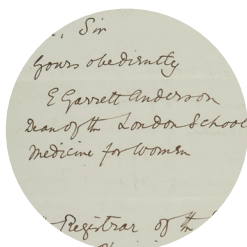 Sir
Yours obediently
E Garrett Anderson
Dean of the London School
Medicine for Women
Registrar of the